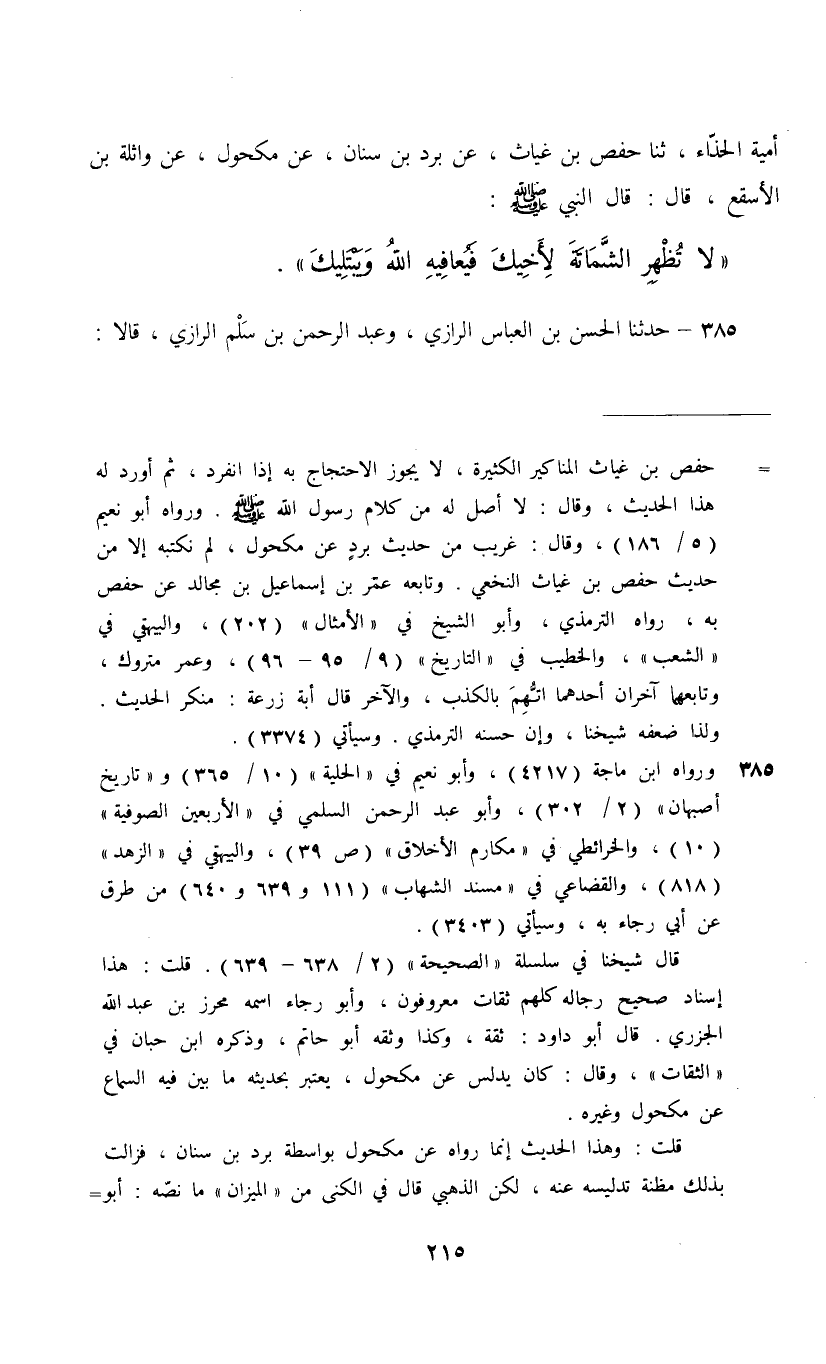 أمية الحذّاء ، ثنا حفص بن غياث ، عن برد بن سنان ، عن مكحول ، عن واثلة بن
الأسقع ، قال : قال النبي ﷺ :
« لا تُظْهِرِ الشَّمَاتَةَ لِأَخِيكَ فَيُعافِيهِ اللهُ وَيَبْتَلِيكَ» .
٣٨٥ – حدثنا الحسن بن العباس الرازي ، وعبد الرحمن بن سَلْم الرازي ، قالا :
= حفص بن غياث المناكير الكثيرة ، لا يجوز الاحتجاج به إذا انفرد ، ثم أورد له
هذا الحديث ، وقال : لا أصل له من كلام رسول الله ﷺ . ورواه أبو نعيم
( ٥ / ١٨٦ ) ، وقال : غريب من حديث بردٍ عن مكحول ، لم نكتبه إلا من
حديث حفص بن غياث النخعي . وتابعه عمر بن إسماعيل بن مجالد عن حفص
به ، رواه الترمذي ، وأبو الشيخ في « الأمثال » ( ٢٠٢ ) ، والبيهقي في
« الشعب » ، والخطيب في « التاريخ » ( ٩ / ٩٥ – ٩٦ ) ، وعمر متروك ،
وتابعهما آخران أحدهما اتُّهِمَ بالكذب ، والآخر قال أبة زرعة : منكر الحديث .
ولذا ضعفه شيخنا ، وإن حسنه الترمذي . وسيأتي ( ٣٣٧٤ ) .
٣٨٥ ورواه ابن ماجة ( ٤٢١٧ ) ، وأبو نعيم في « الحلية » ( ١٠ / ٣٦٥ ) و « تاريخ
أصبهان » ( ٢ / ٣٠٢ ) ، وأبو عبد الرحمن السلمي في « الأربعين الصوفية »
( ١٠ ) ، والخرائطي في « مكارم الأخلاق » ( ص ٣٩ ) ، والبيهقي في « الزهد »
( ٨١٨ ) ، والقضاعي في « مسند الشهاب » ( ١١١ و ٦٣٩ و ٦٤٠ ) من طرق
عن أبي رجاء به ، وسيأتي ( ٣٤٠٣ ) .
قال شيخنا في سلسلة « الصحيحة » ( ٢ / ٦٣٨ – ٦٣٩ ) . قلت : هذا
إسناد صحيح رجاله كلهم ثقات معروفون ، وأبو رجاء اسمه محرز بن عبد الله
الجزري . قال أبو داود : ثقة ، وكذا وثقه أبو حاتم ، وذكره ابن حبان في
« الثقات » ، وقال : كان يدلس عن مكحول ، يعتبر بحديثه ما بين فيه السماع
عن مكحول وغيره .
قلت : وهذا الحديث إنما رواه عن مكحول بواسطة برد بن سنان ، فزالت
بذلك مظنة تدليسه عنه ، لكن الذهبي قال في الكنى من « الميزان » ما نصّه : أبو=
٢١٥